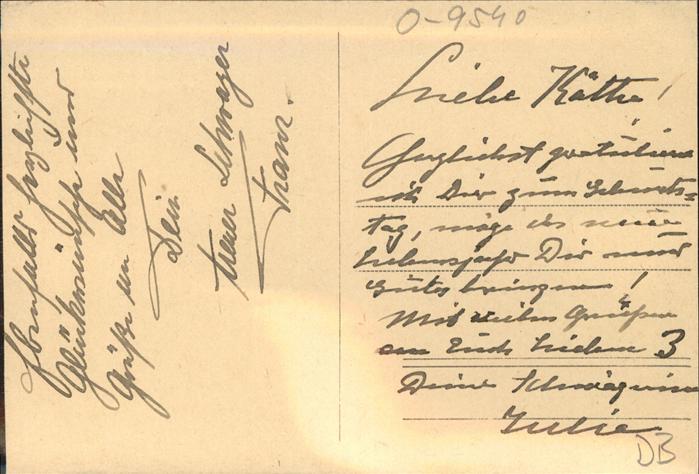 0-9540
Liebe Käthe!
Herzlichst gratuliere
ich Dir zum Geburts=
tag, möge das neue
Lebensjahr Dir nur
Gutes bringen!
Mit vielen Grüßen
an Euch Lieben 3
Deine Schwägerin
Julie
DB
Ebenfalls herzlichste
Glückwünsche und
Grüße an Alle
Dein
treuer Schwager
Franz.